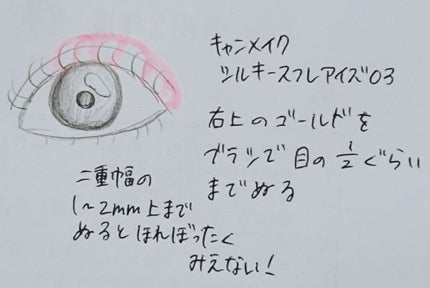 キャンメイク
シルキースフレアイズ03
右上のゴールドを
ブラシで目の1/2ぐらい
までぬる
二重幅の
1〜2mm上まで
ぬるとはれぼったく
みえない!